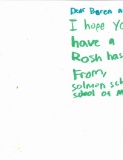 Dear Beren a
I hope yo
have a
Rosh has
From,
solmon sch
school of m